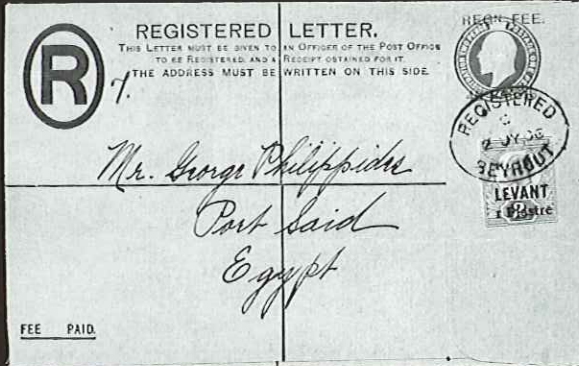 REGISTERED LETTER.
THIS LETTER MUST BE GIVEN TO AN OFFICER OF THE POST OFFICE
TO BE REGISTERED, AND A RECEIPT OBTAINED FOR IT.
THE ADDRESS MUST BE WRITTEN ON THIS SIDE.
R
REGN FEE.
REGISTERED
2 JY 06
BEYROUT
LEVANT
1 Piastre
Mr. George Philippides
Port Said
Egypt
FEE PAID.